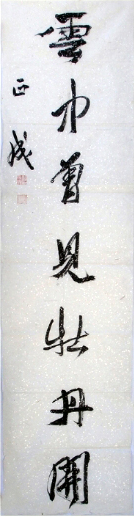 雲中曾見牡丹開
正成